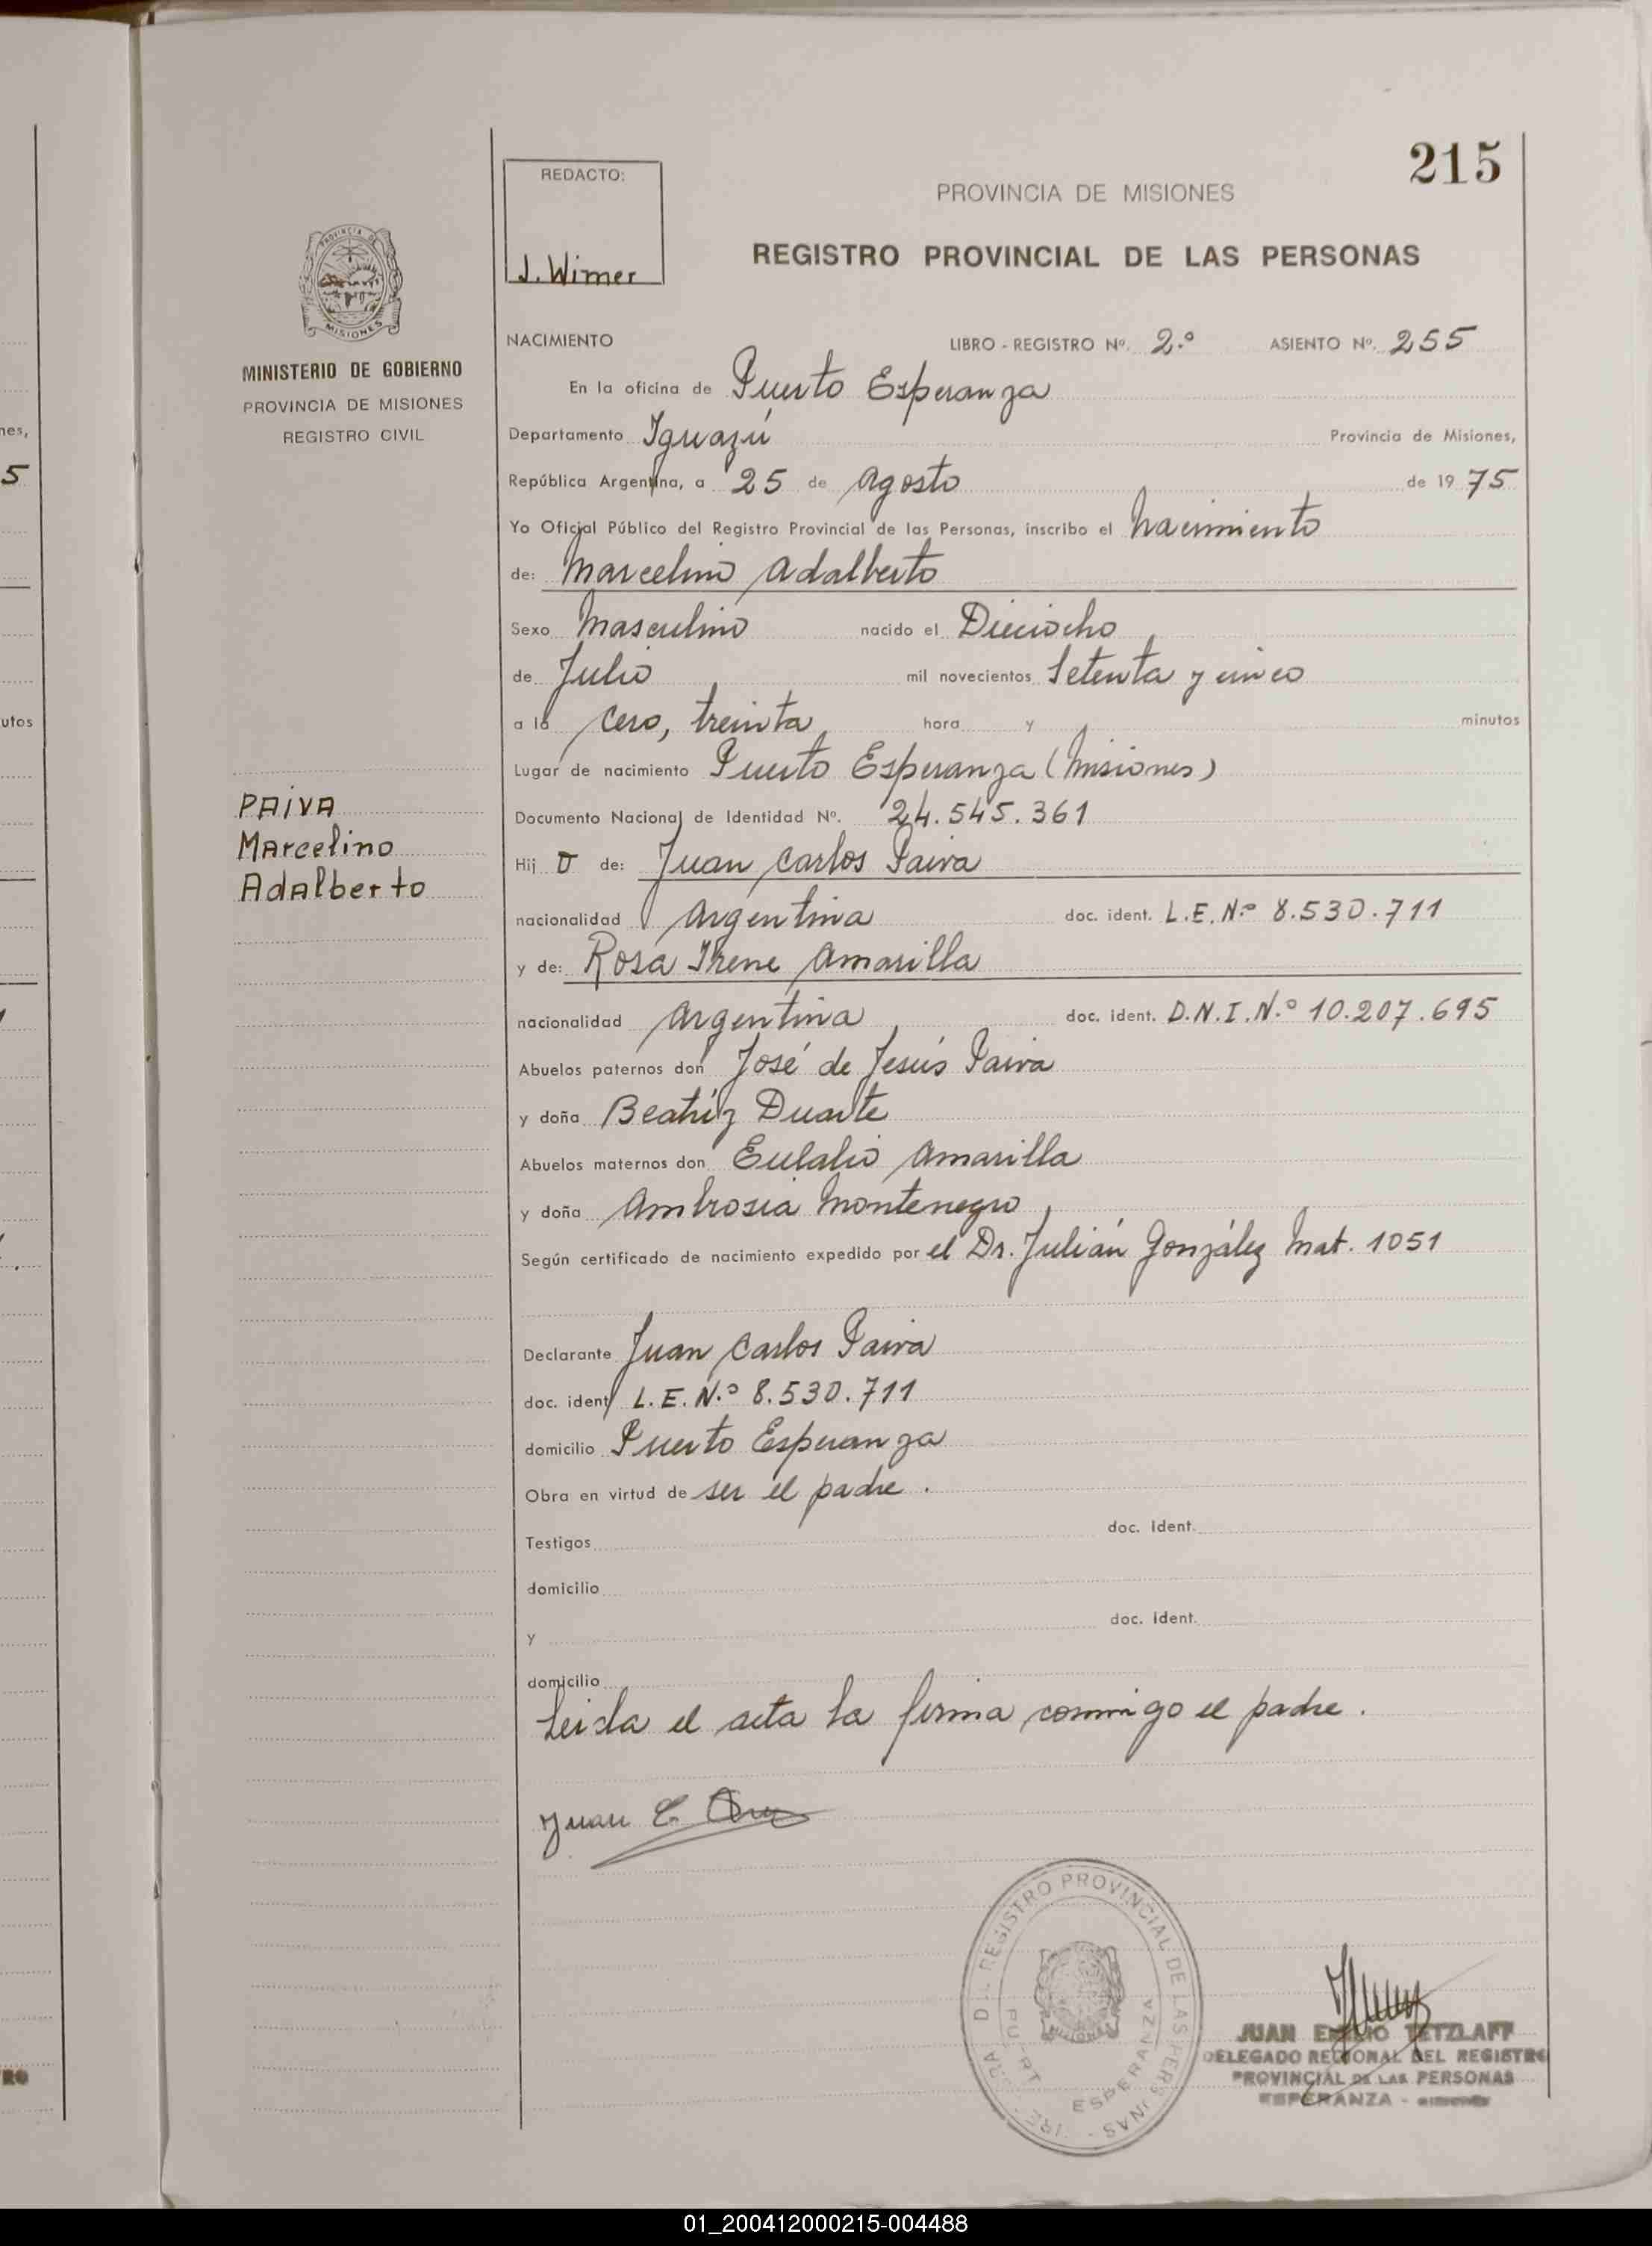 215
REDACTO:
J. Wimer
PROVINCIA DE MISIONES
REGISTRO PROVINCIAL DE LAS PERSONAS
PROVINCIA DE
MISIONES
MINISTERIO DE GOBIERNO
PROVINCIA DE MISIONES
REGISTRO CIVIL
NACIMIENTO LIBRO - REGISTRO Nº. 2.º ASIENTO Nº. 255
En la oficina de Puerto Esperanza
Departamento Iguazú Provincia de Misiones,
República Argentina, a 25 de Agosto de 19 75
Yo Oficial Público del Registro Provincial de las Personas, inscribo el Nacimiento
de: Marcelino Adalberto
Sexo Masculino nacido el Dieciocho
de Julio mil novecientos Setenta y cinco
a la Cero, treinta hora y minutos
Lugar de nacimiento Puerto Esperanza (Misiones)
PAIVA
Marcelino
Adalberto
Documento Nacional de Identidad Nº. 24.545.361
Hij o de: Juan Carlos Paiva
nacionalidad Argentina doc. ident. L.E.N.º 8.530.711
y de: Rosa Irene Amarilla
nacionalidad Argentina doc. ident. D.N.I.N.º 10.207.695
Abuelos paternos don José de Jesús Paiva
y doña Beatríz Duarte
Abuelos maternos don Eulalio Amarilla
y doña Ambrosia Montenegro
Según certificado de nacimiento expedido por el Dr. Julián González Mat. 1051
Declarante Juan Carlos Paiva
doc. ident L.E.N.º 8.530.711
domicilio Puerto Esperanza
Obra en virtud de ser el padre.
Testigos doc. Ident.
domicilio
y doc. ident.
domicilio
Leida el acta la firma conmigo el padre.
Juan C.
REGISTRO PROVINCIAL DE LAS PERSONAS
ESPERANZA
JUAN EMILIO TETZLAFF
DELEGADO REGIONAL DEL REGISTRO
PROVINCIAL DE LAS PERSONAS
ESPERANZA -
nes,
5
utos
RO
01_200412000215-004488